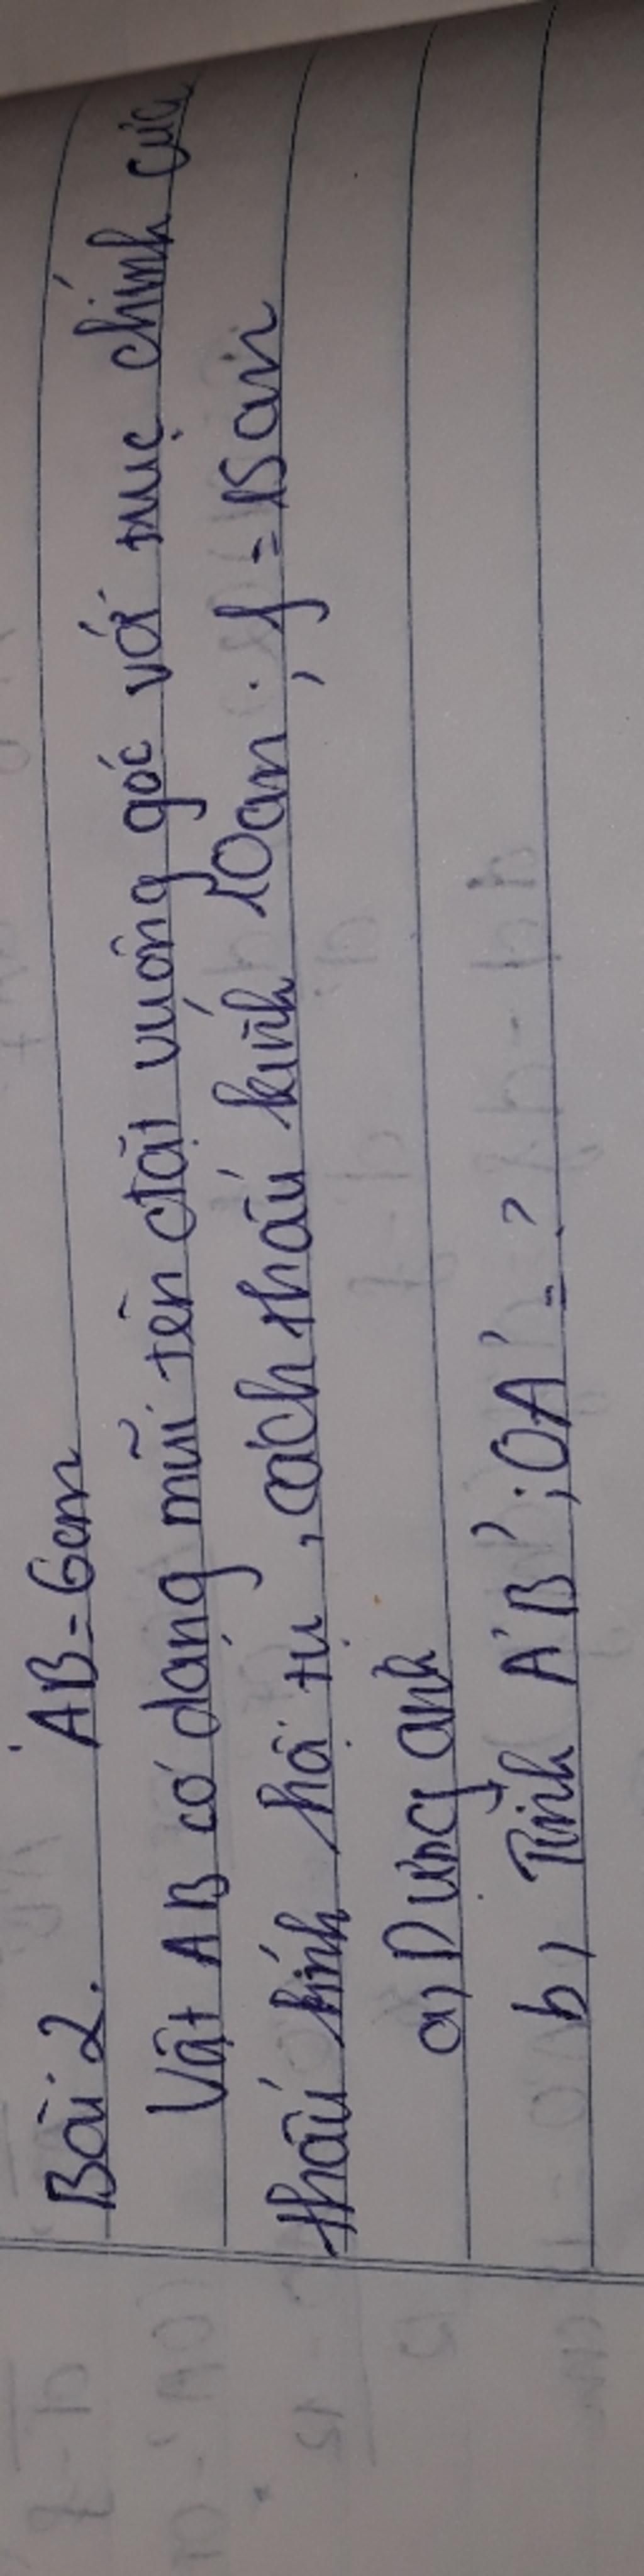 Bài 2. AB = 6cm
Vật AB có dạng mũi tên đặt vuông góc với trục chính của
thấu kính hội tụ, cách thấu kính 10cm, f = 15cm
a, Dựng ảnh
b, Tính A'B'; OA' = ?